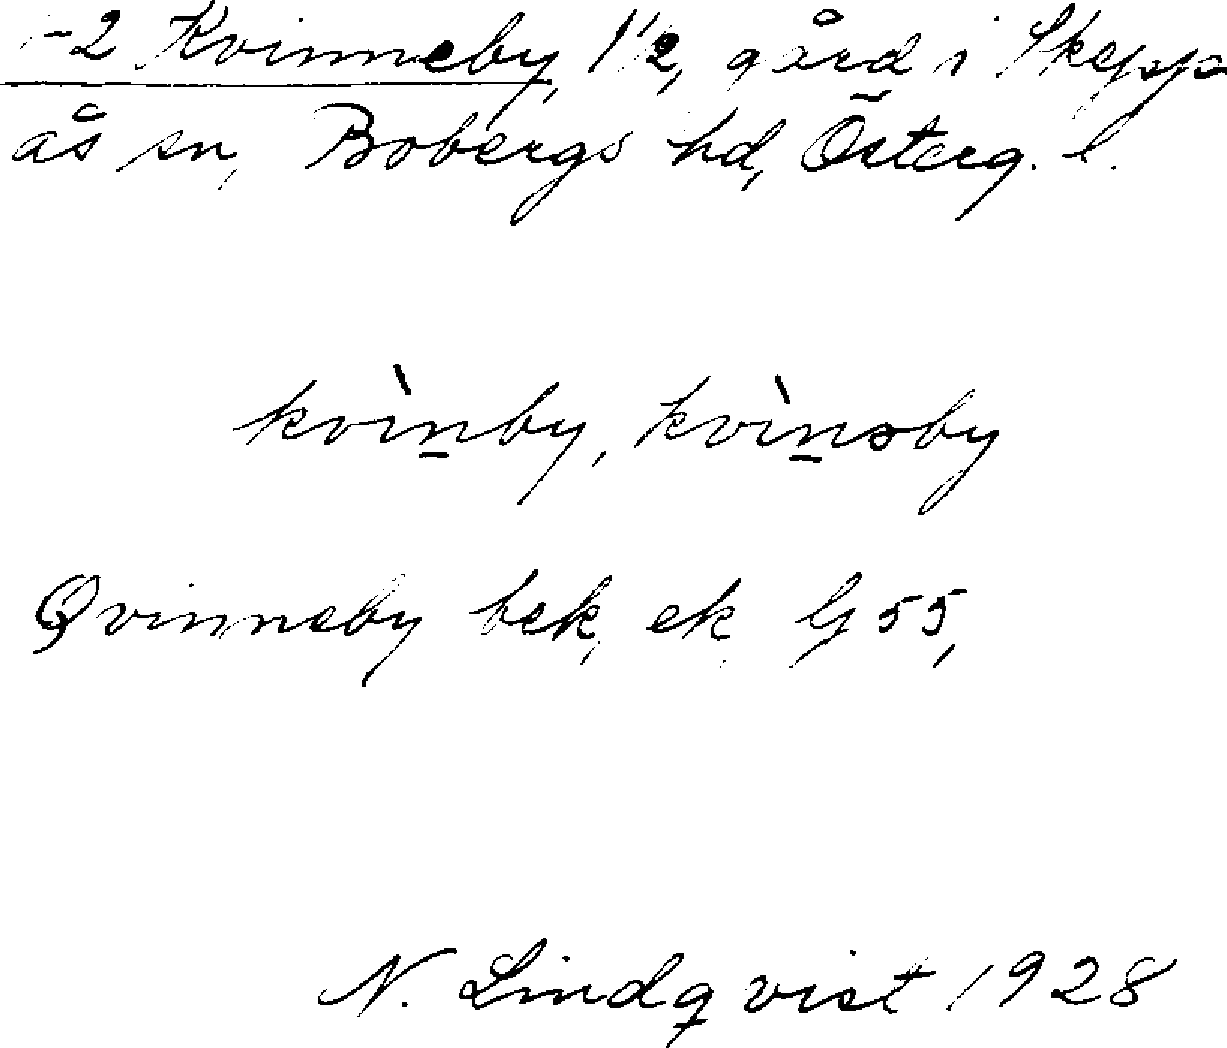 -2 Kvinneby, 1 1/2, gård i Skepp
ås sn, Bobergs hd, Österg. l.
kvìn̲by, kvìn̲əby
Qvinneby bek, ek G 55,
N. Lindqvist 1928